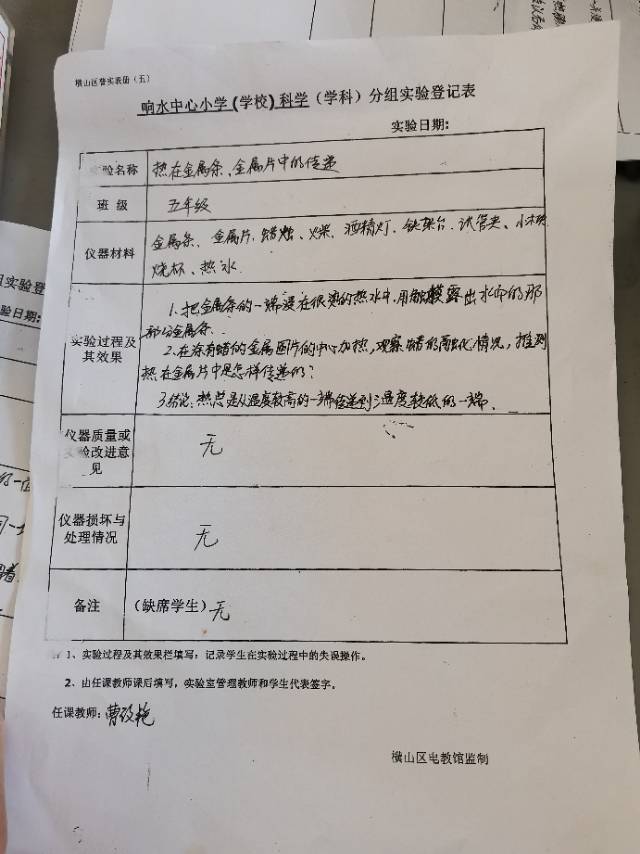 横山区普实表册（五）
响水中心小学(学校)科学（学科）分组实验登记表
实验日期:
验名称 热在金属条、金属片中的传递
班 级 五年级
仪器材料 金属条、金属片、蜡烛、火柴、酒精灯、铁架台、试管夹、
烧杯、热水
实验过程及其效果
1.把金属条的一端浸在很烫的热水中,用触摸露出水面的那
部分金属条.
2.在涂有蜡的金属圆片的中心加热,观察蜡的融化情况,推测
热在金属片中是怎样传递的?
3.结论:热总是从温度较高的一端传递到温度较低的一端、
仪器质量或
验改进意
见
无
仪器损坏与
处理情况
无
备注 （缺席学生）无
1、实验过程及其效果栏填写：记录学生在实验过程中的失误操作。
2、由任课教师课后填写，实验室管理教师和学生代表签字。
任课教师:
横山区电教馆监制
实验登
验日期: